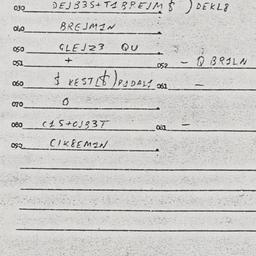 030 DEJ335+T1BPEJM $ ) DEKL8
040 BREJM1N
050 GLEJZ3 QU
051 + 052 - QBR1LN
060 $ KEST($)P1DAL1 061 -
070 0
080 C15+0J33T 081 -
090 C1K8EM1N